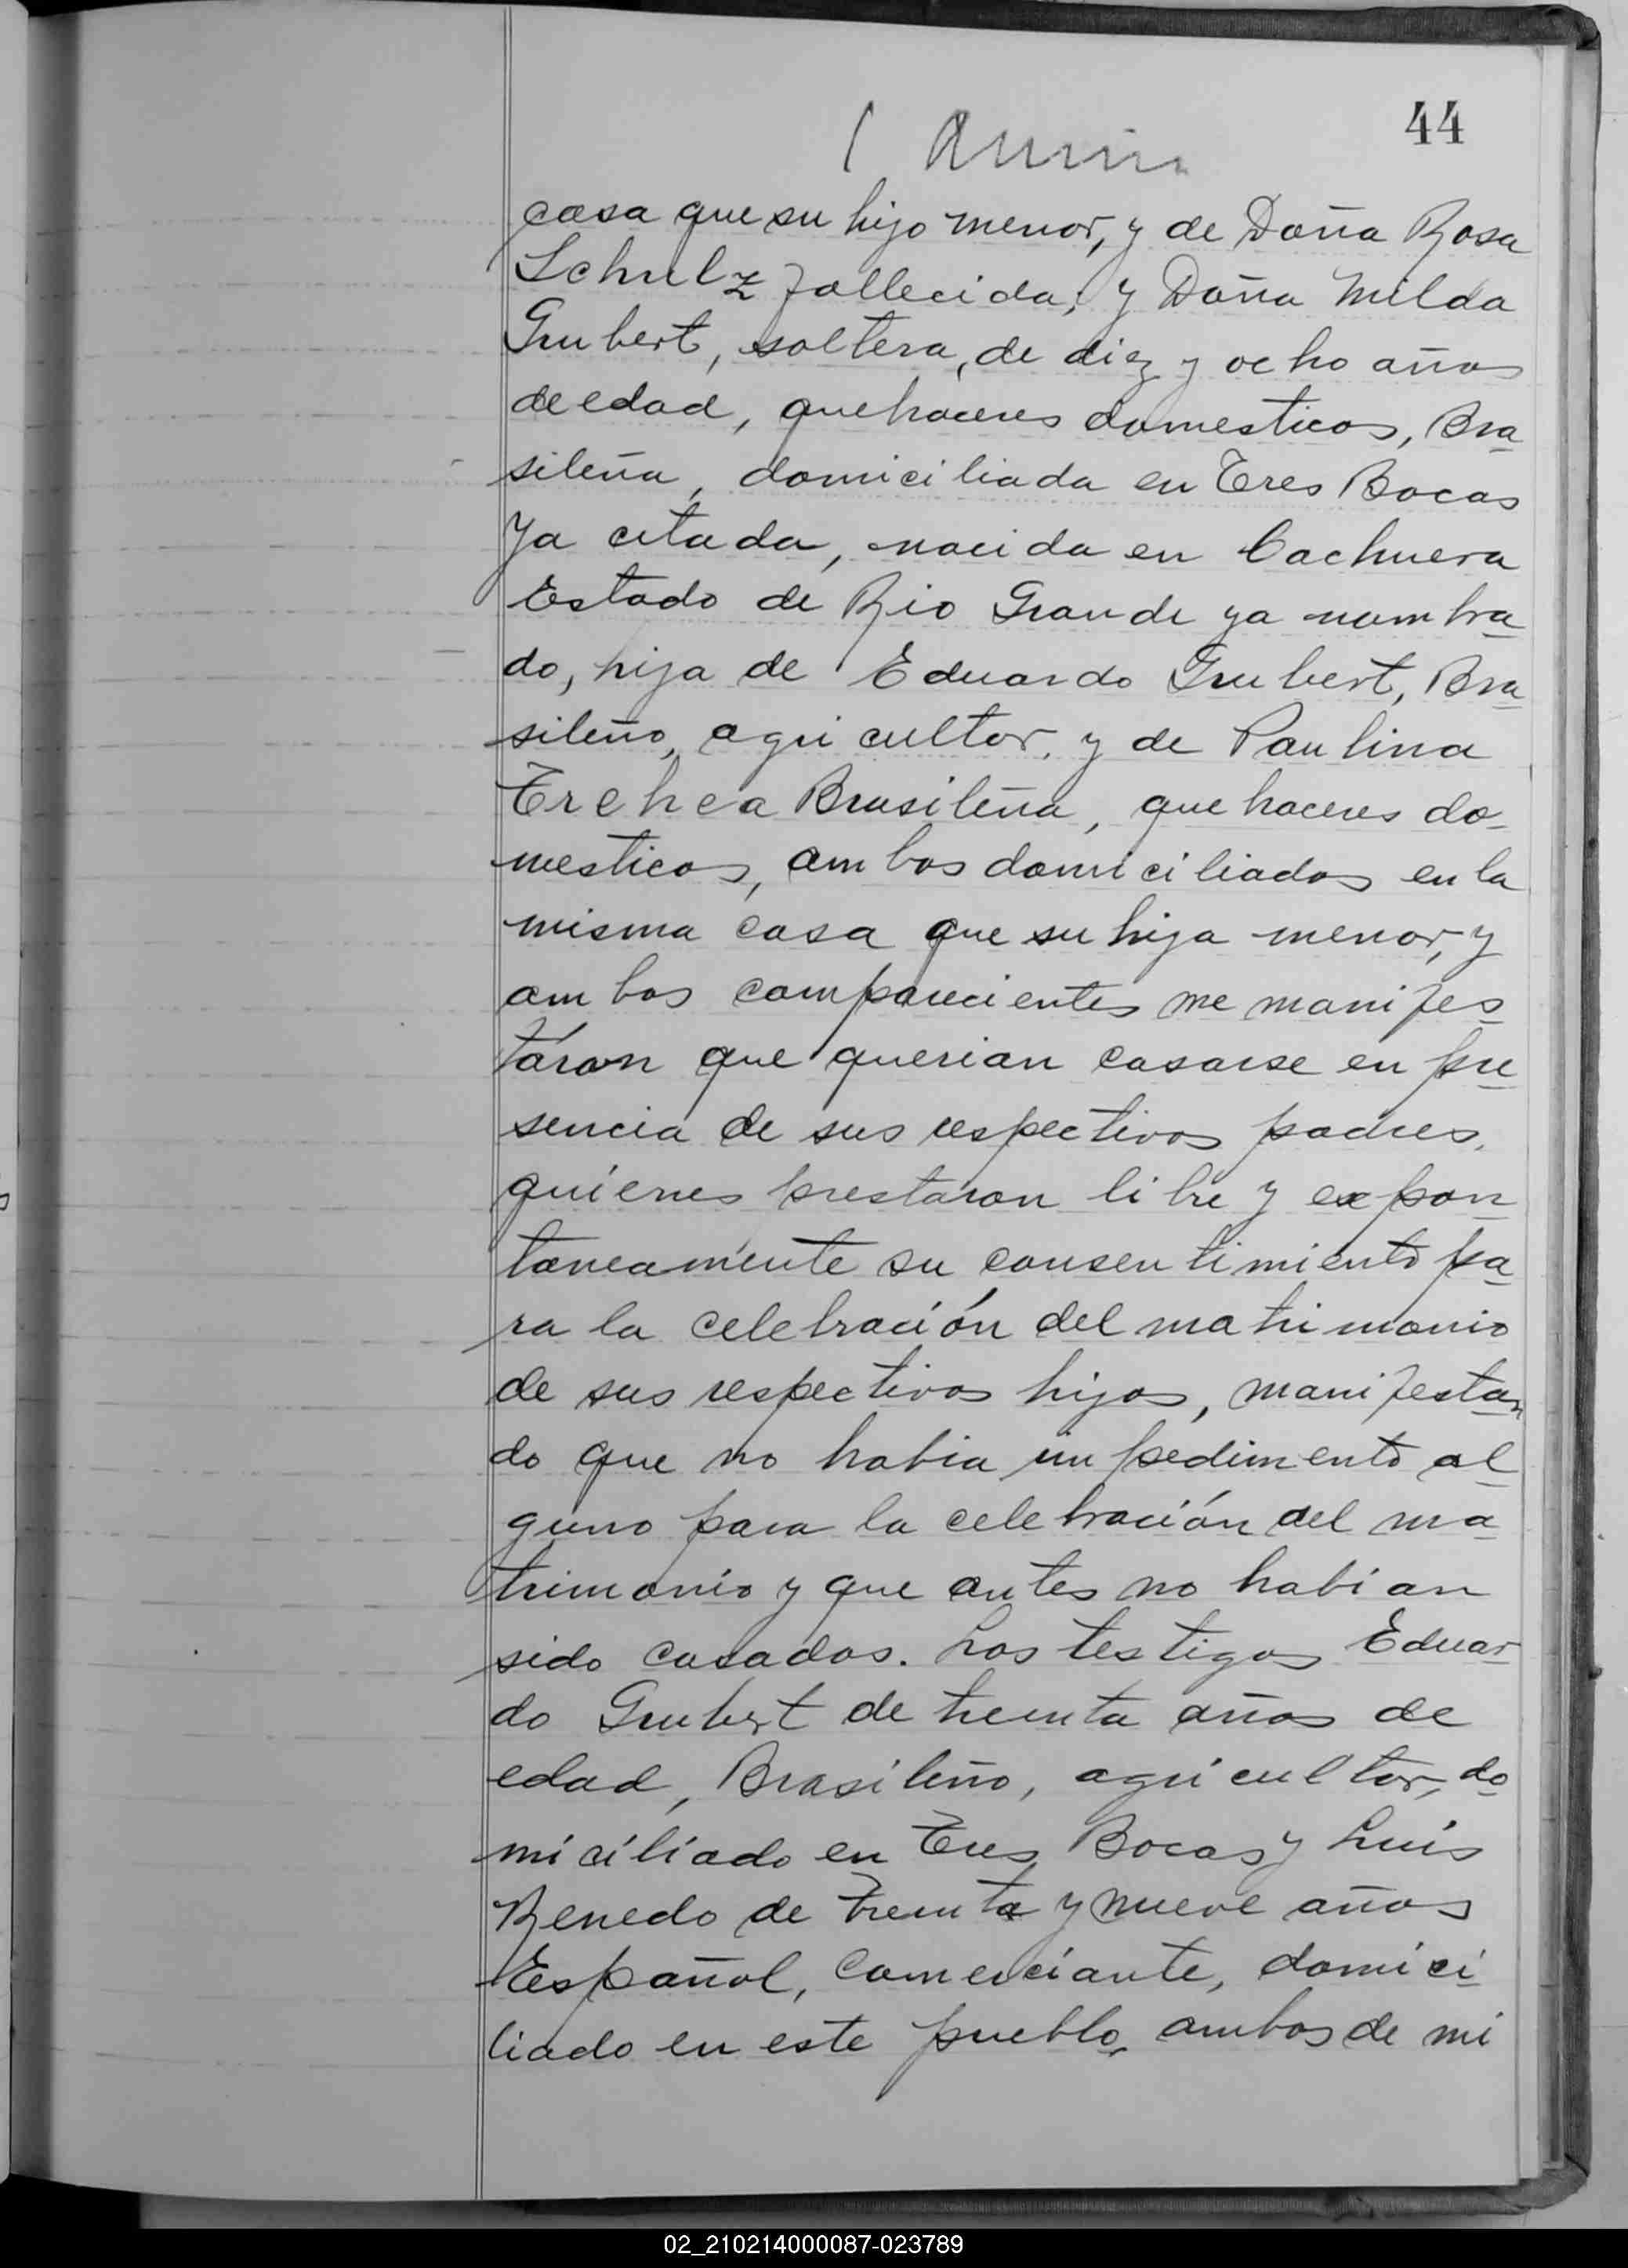 44
casa que su hijo menor, y de Doña Rosa
Schulz fallecida, y Doña Milda
Grubert, soltera, de diez y ocho años
de edad, quehaceres domesticos, Bra
sileña, domiciliada en Tres Bocas
ya citada, nacida en Cachuera
Estado de Rio Grande ya nombra
do, hija de Eduardo Grubert, Bra
sileño, agricultor, y de Paulina
Trehea Brasileña, quehaceres do-
mesticos, ambos domiciliados en la
misma casa que su hija menor, y
ambos comparecientes me manifes
táron que querian casarse en pre
sencia de sus respectivos padres,
quienes prestáron libre y expon
taneamente su consentimiento pa
ra la celebración del matrimonio
de sus respectivos hijos, manifestan
do que no habia impedimento al
guno para la celebración del ma
trimonio y que antes no habian
sido casados. Los testigos Eduar
do Grubert de treinta años de
edad, Brasileño, agricultor, do
miciliado en Tres Bocas y Luis
Renedo de treinta y nueve años
Español, Comerciante, domici
liado en este pueblo, ambos de mi
02_210214000087-023789